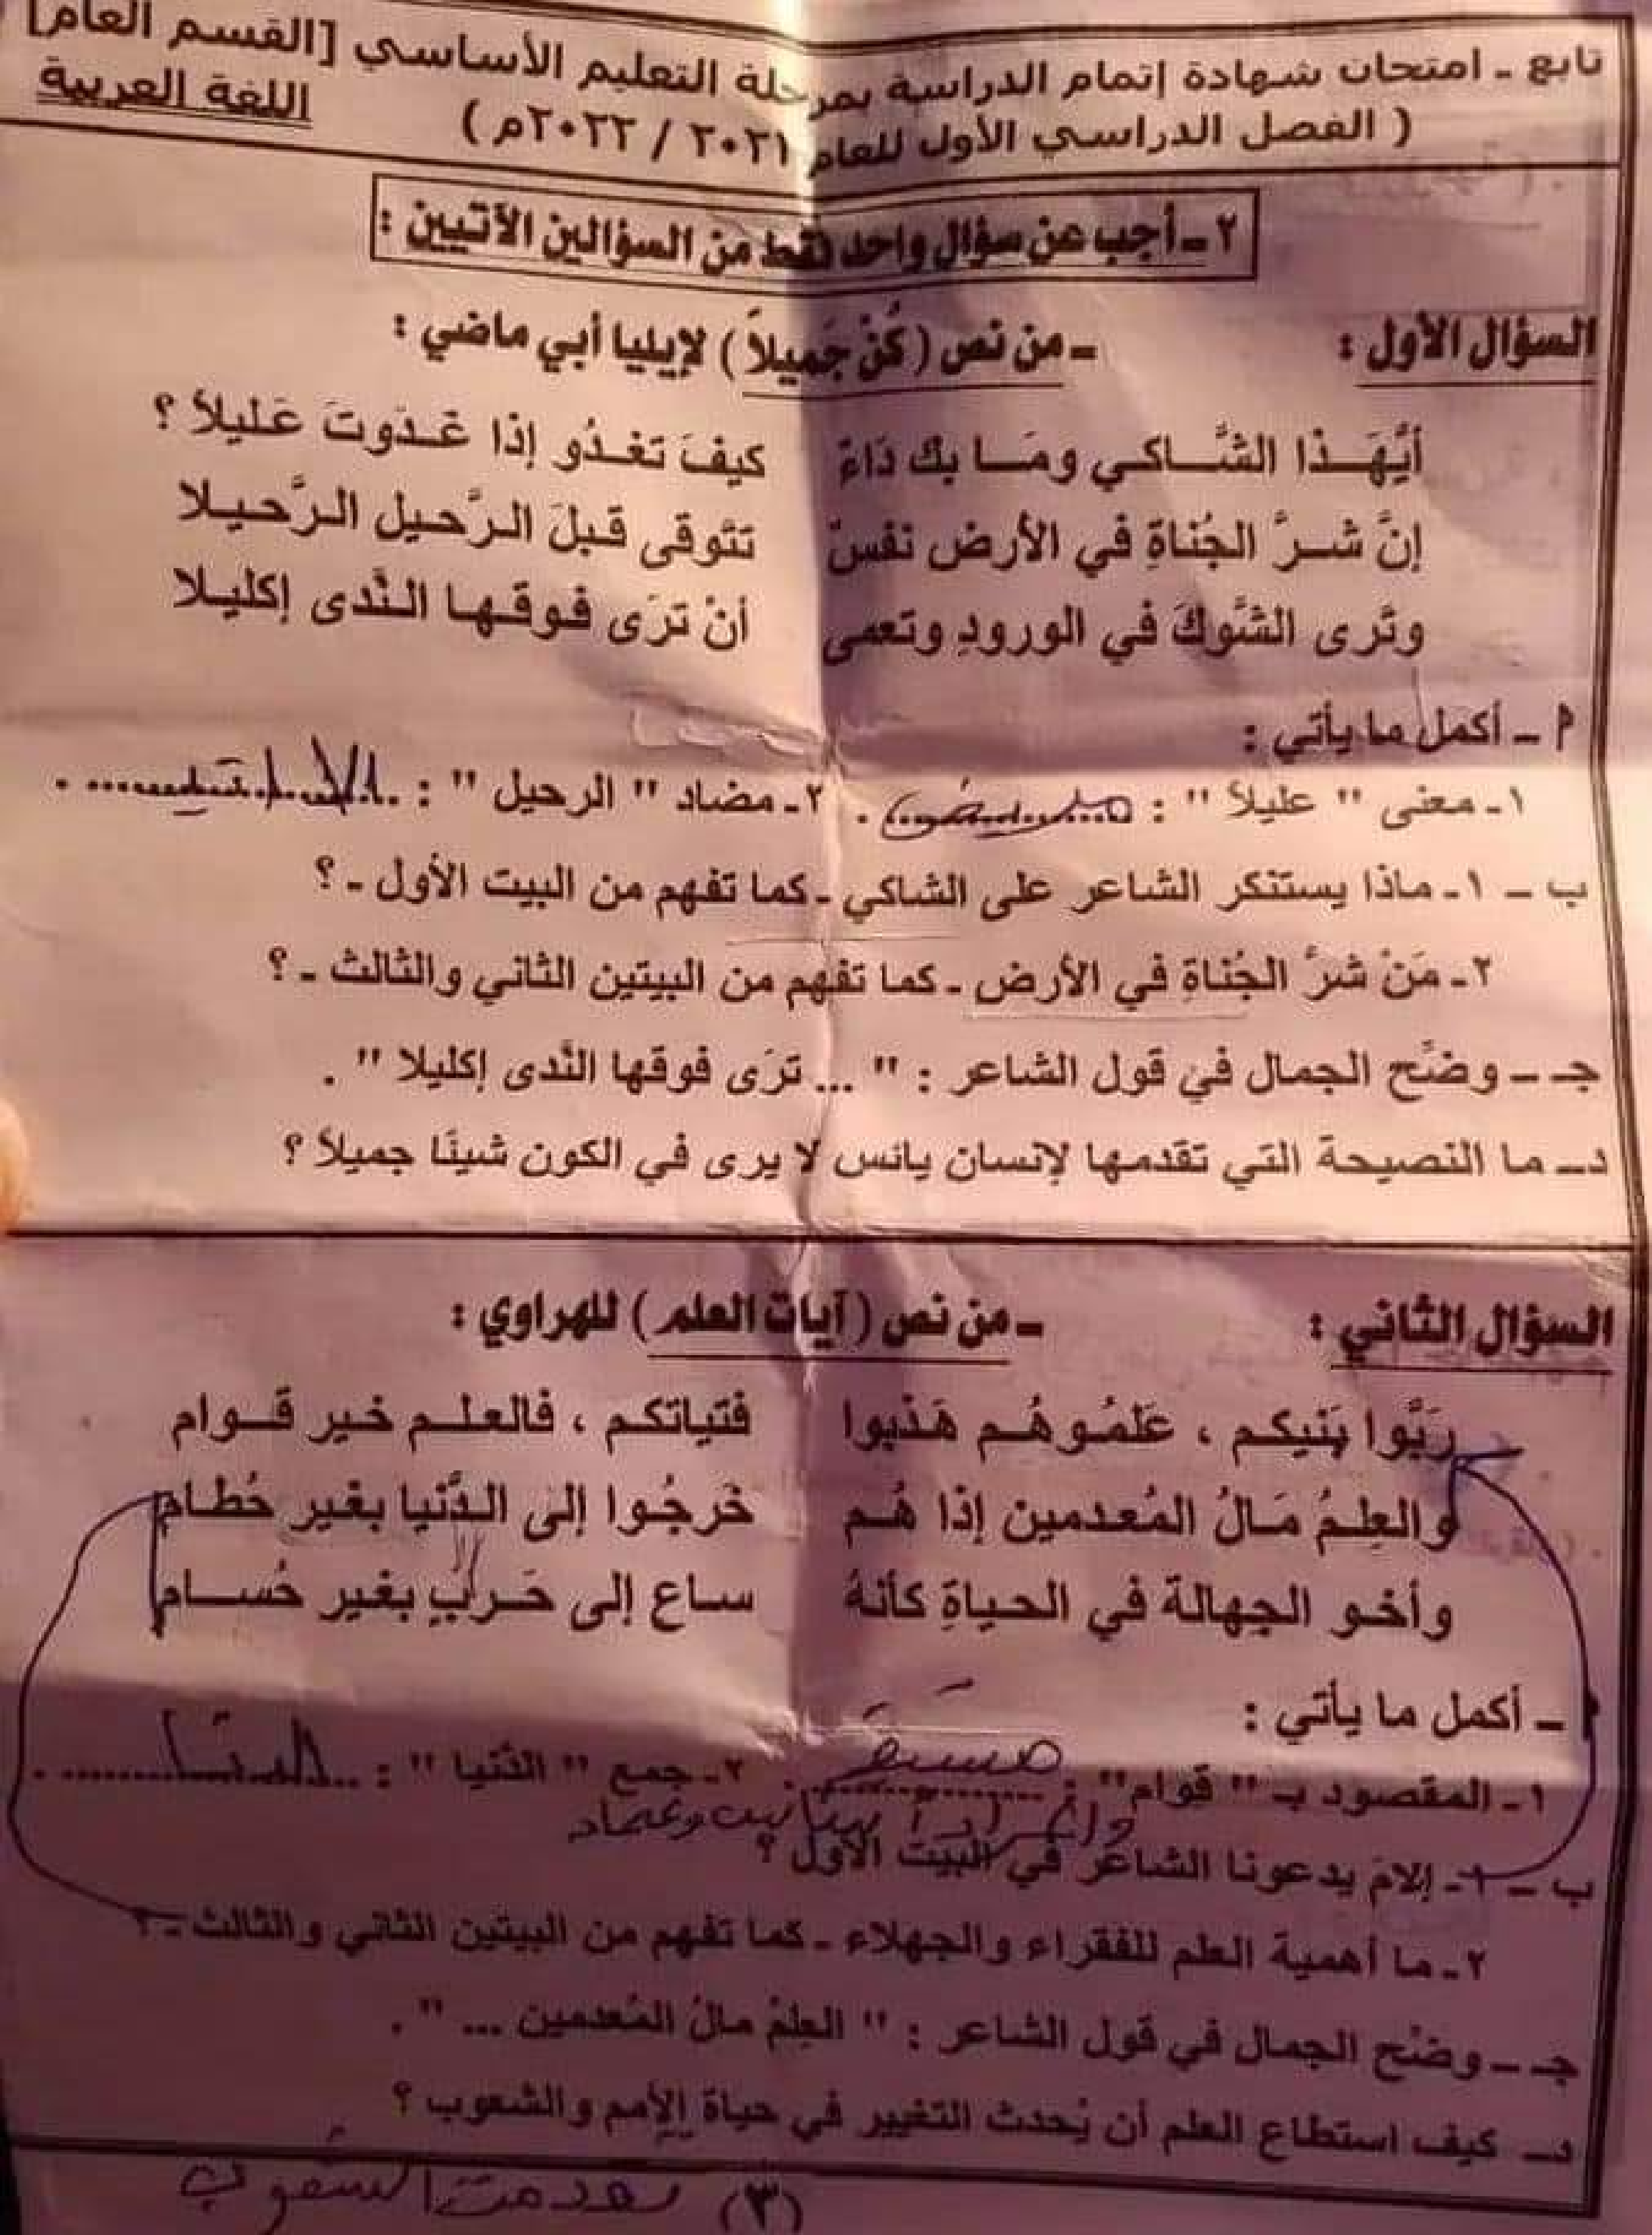 تابع - امتحان شهادة إتمام الدراسة بمرحلة التعليم الأساسي [القسم العام]
( الفصل الدراسي الأول للعام ٢٠٢١ / ٢٠٢٢م ) اللغة العربية
٢ - أجب عن سؤال واحد فقط من السؤالين الآتيين :
السؤال الأول : - من نص ( كُنْ جَميلاً ) لإيليا أبي ماضي :
أيُّهَـذا الشَّـاكـي ومَـا بـك دَاءٌ كيفَ تغـدُو إذا غَـدَوتَ عَـليلاً ؟
إنَّ شـرَّ الجُناةِ في الأرض نفسٌ تتَوقى قـبلَ الـرَّحيل الـرَّحيـلا
وتَرى الشَّوكَ في الورودِ وتعمى أنْ تَرَى فـوقـهـا الـنَّدى إكليـلا
م - أكمل ما يأتي :
١- معنى " عليلاً " : مريض . ٢- مضاد " الرحيل " : ........ .
ب - ١- ماذا يستنكر الشاعر على الشاكي - كما تفهم من البيت الأول - ؟
٢- مَنْ شرُّ الجُناةِ في الأرض - كما تفهم من البيتين الثاني والثالث - ؟
جـ - وضِّح الجمال في قول الشاعر : " ... ترَى فوقها النَّدى إكليلا " .
د- ما النصيحة التي تقدمها لإنسان يائس لا يرى في الكون شيئًا جميلاً ؟
السؤال الثاني : - من نص ( آيات العلم ) للهراوي :
رَبُّوا بَنيكم ، عَلمُـوهُـم هَذبوا فتياتكم ، فالعلـم خير قـوام
والعِلمُ مَـالُ المُعدمين إذا هُـم خَرجُـوا إلى الـدُّنيا بغير حُطـام
وأخـو الجهالة في الحياةِ كأنهُ سـاع إلى حَـربٍ بغير حُسـام
م - أكمل ما يأتي :
١- المقصود بـ " قوام" : ........ . ٢- جمع " الدُّنيا " : ........ .
ب - ١- إلامَ يدعونا الشاعر في البيت الأول ؟
٢- ما أهمية العلم للفقراء والجهلاء - كما تفهم من البيتين الثاني والثالث - ؟
جـ - وضِّح الجمال في قول الشاعر : " العِلمُ مالُ المُعدمين ... " .
د- كيف استطاع العلم أن يُحدث التغيير في حياة الأمم والشعوب ؟
(٣)